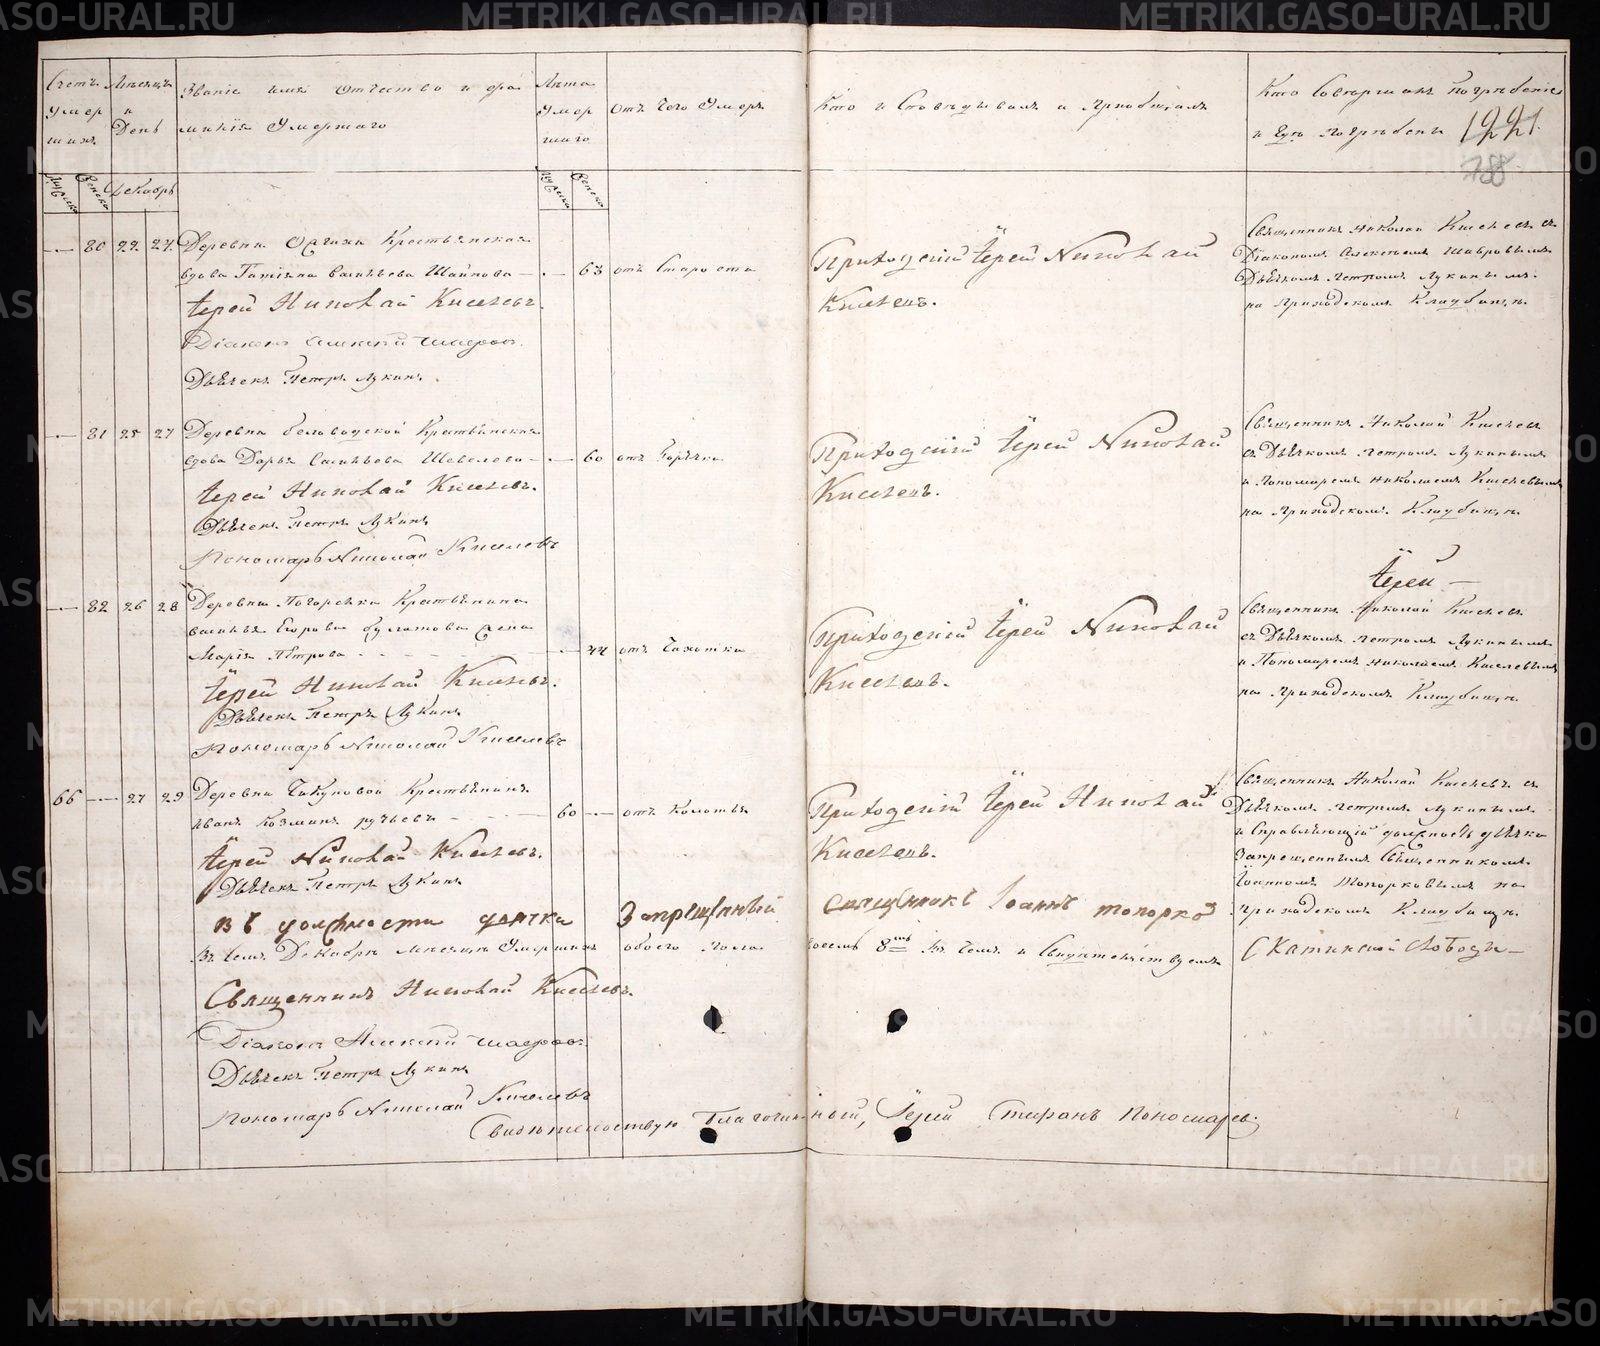 METRIKI.GASO-URAL.RU
Счетъ
Умер
шихъ
Мѣсяцъ
и
День
Званіе имя Отчество и фа
милія Умершаго
Лѣта
Умер
шаго
Отъ Чего Умеръ
Кто и Споведывалъ и Пріобщалъ
Кто Совершалъ Погребеніе
и Гдѣ Погребены
1221
788
Декабрь
80 22 24 Деревни Крестьянская
вдова Татіяна Васильева Шаинова 63 отъ Старости
Іерей Николай Киселевъ.
Діаконъ Алексѣй
Дьячекъ Петръ Лукинъ.
Приходскій Іерей Николай
Киселевъ.
Священникъ Николай Киселевъ съ
Діакономъ Алексѣемъ
Дьячкомъ Петромъ Лукинымъ.
на Приходскомъ Кладбищѣ.
81 25 27 Деревни беловодской Крестьянская
вдова Дарья Савельева Шевелева 60 отъ Горячки
Іерей Николай Киселевъ.
Дьячекъ Петръ Лукинъ
Пономарь Николай Киселевъ
Приходскій Іерей Николай
Киселевъ.
Священникъ Николай Киселевъ
съ Дьячкомъ Петромъ Лукинымъ
и Пономаремъ Николаемъ Киселевымъ
на Приходскомъ Кладбищѣ.
82 26 28 Деревни Погорелки Крестьянина
василья Егорова булатова жена
Марія Петрова 44 отъ Чахотки
Іерей Николай Киселевъ.
Дьячекъ Петръ Лукинъ
Пономарь Николай Киселевъ
Приходскій Іерей Николай
Киселевъ.
Іерей
Священникъ Николай Киселевъ
съ Дьячкомъ Петромъ Лукинымъ
и Пономаремъ Николаемъ Киселевымъ
на Приходскомъ Кладбищѣ.
66 27 29 Деревни Чикуновой Крестьянинъ
Иванъ Козминъ ручьевъ 60 отъ Колотья
Іерей Николай Киселевъ.
Дьячекъ Петръ Лукинъ
Приходскій Іерей Николай
Киселевъ.
Священникъ Николай Киселевъ съ
Дьячкомъ Петромъ Лукинымъ
и Справляющій должность дьячка
Запрещеннымъ Священникомъ
Іоанномъ Топорковымъ на
приходскомъ Кладбищѣ
въ должности дьячка Запрещеный священикъ Іоаннъ топорко
Въ Семъ Декабрѣ мѣсяцѣ Умершихъ обоего пола восемь 8мь въ Чемъ и Свидѣтельствуемъ Скатинской Слободы
Священникъ Николай Киселевъ.
Діаконъ Алексѣй
Дьячекъ Петръ Лукинъ
Пономарь Николай Киселевъ
Свидѣтельствую Благочинный, Іерей Стефанъ Пономаревъ